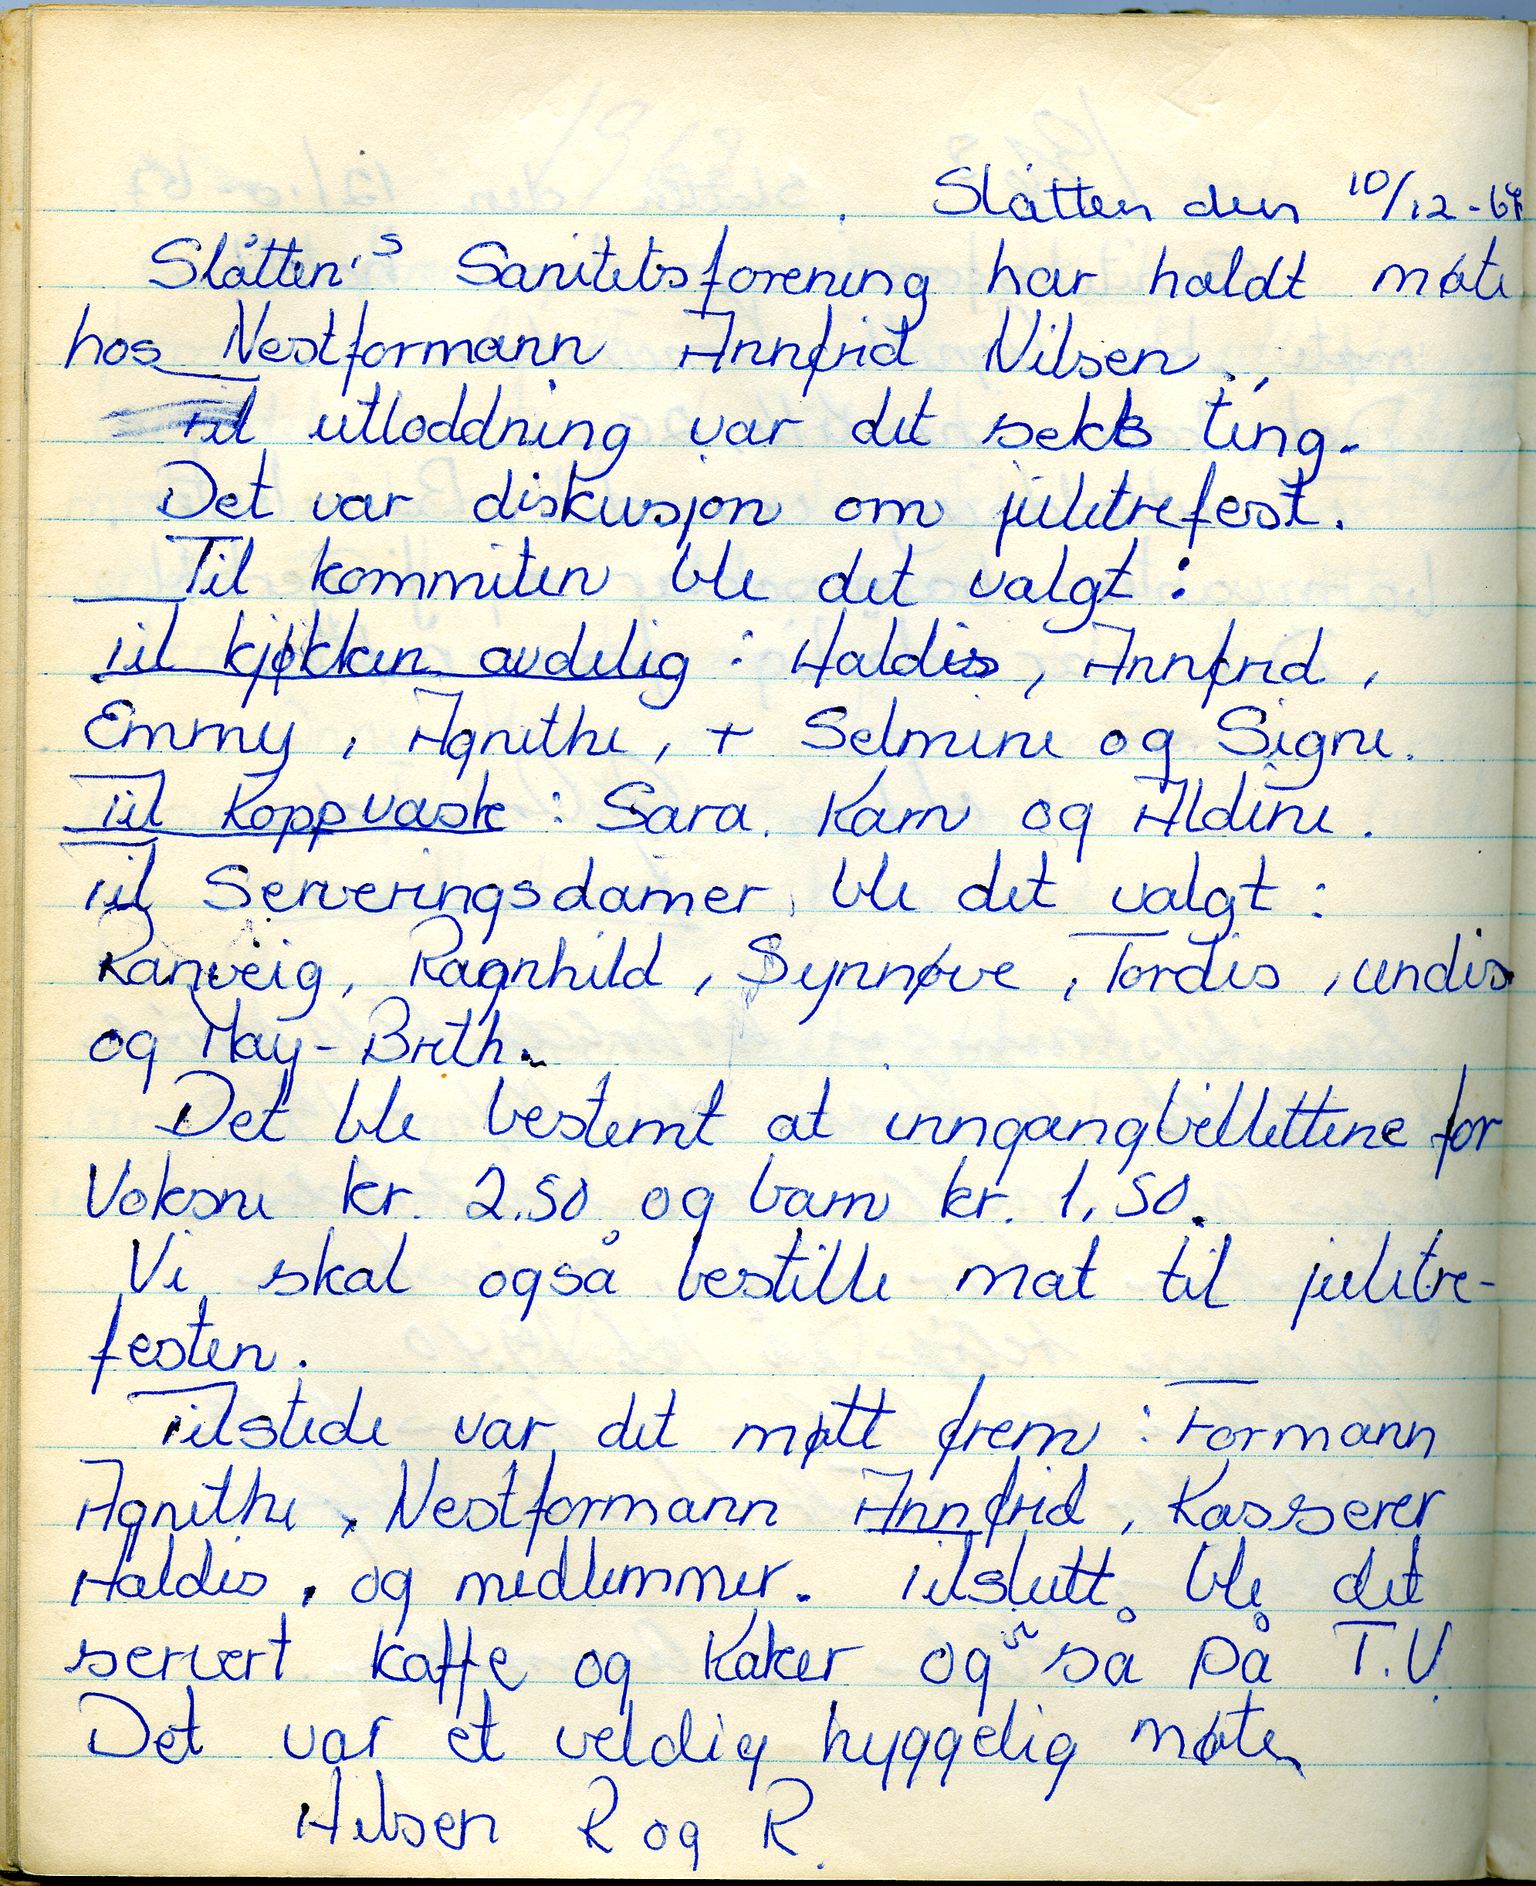 Slåtten den 10/12-67
Slåtten's Sanitetsforening har holdt møte
hos Nestformann Annfrid Nilsen.
Til utloddning var det sekks ting.
Det var diskusjon om juletrefest.
Til kommiten ble det valgt:
Til kjøkken avdelig: Haldis, Annfrid,
Emmy, Agnethe, + Selmine og Signe.
Til Koppvask: Sara. Karn og Aldine.
Til Serveringsdamer ble det valgt:
Ranveig, Ragnhild, Synnøve, Tordis, undis
og May-Brith.
Det ble bestemt at inngangbillettene for
Voksne kr. 2.50 og barn kr. 1,50.
Vi skal også bestille mat til juletre-
festen.
Tilstede var det møtt frem: Formann
Agnethe, Nestformann Annfrid, Kasserer
Haldis, og medlemmer. Tilslutt ble det
servert kaffe og Kaker og så på T.V.
Det var et veldig hyggelig møte
Hilsen R og R.